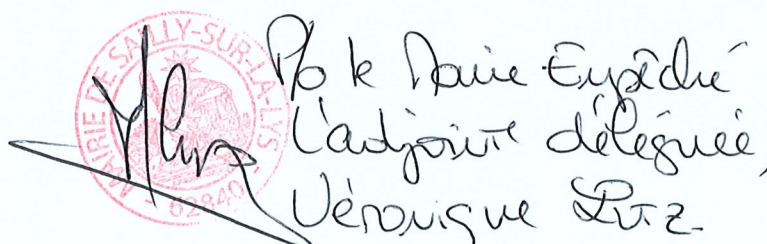 MAIRIE DE SAILLY-SUR-LA-LYS
62840
P/o le Maire Empêché
L'adjointe déléguée,
Véronique